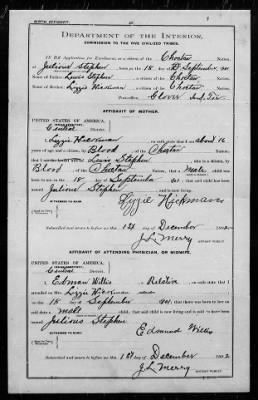 BIRTH AFFIDAVIT.
DEPARTMENT OF THE INTERIOR,
COMMISSION TO THE FIVE CIVILIZED TRIBES.
IN RE Application for Enrollment, as a citizen of the Choctaw Nation,
of Julious Stephen, born on the 18 day of September, 1901
Name of Father: Lewis Stephen, a citizen of the Choctaw Nation.
Name of Mother: Lizzie Hickman, a citizen of the Choctaw Nation.
Postoffice, Glover Ind. Ter.
AFFIDAVIT OF MOTHER.
UNITED STATES OF AMERICA,
Central District.
I, Lizzie Hickman, on oath state that I am about 16
years of age and a citizen by Blood of the Choctaw Nation;
Lewis Stephen, who is a citizen, by
Blood of the Choctaw Nation; that a male child was
born to me on the 18 day of September, 1901; that said child has been
named Julious Stephen, and is now living.
Lizzie Hickman
Subscribed and sworn to before me this 1st day of December, 1902
J L Merry
NOTARY PUBLIC.
AFFIDAVIT OF ATTENDING PHYSICIAN, OR MIDWIFE.
UNITED STATES OF AMERICA,
Central District.
I, Edman Willis, a Relative, on oath state that I
attended on Mrs. Lizzie Hickman
18 day of September, 1901; that there was born to her on
said date a male child; that said child is now living and is said to have been
named Julious Stephen
Edmund Willis
Subscribed and sworn to before me this 1st day of December, 1902
J L Merry
NOTARY PUBLIC.